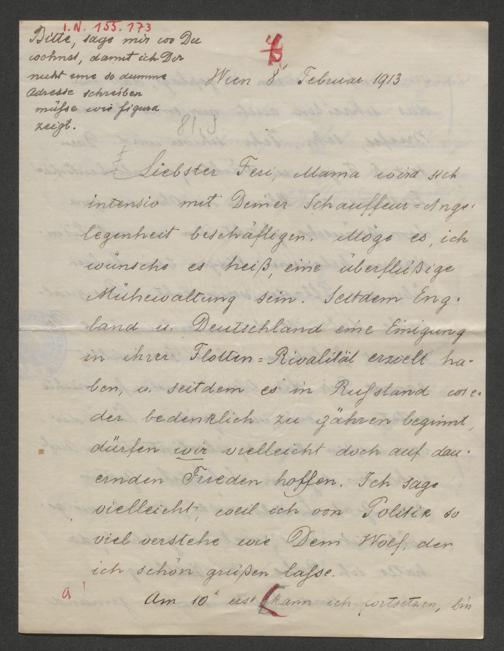 I.N. 155.173
Bitte, sage mir wo Du
wohnst, damit ich Dir
nicht eine so dumme
Adresse schreiben
müsse wie figura
zeigt.
Wien 8t Februar 1913
81/3
Liebster Feri, Mama wird sich
intensiv mit Deiner Schauffeur=Ange-
legenheit beschäftigen. Möge es, ich
wünsche es heiß, eine überflüßige
Mühewaltung sein. Seitdem Eng-
land u. Deutschland eine Einigung
in ihrer Flotten=Rivalität erzielt ha-
ben, u. seitdem es in Rußland wie-
der bedenklich zu gähren beginnt,
dürfen wir vielleicht doch auf dau-
ernden Frieden hoffen. Ich sage
vielleicht, weil ich von Politik so
viel verstehe wie Dein Wolf, den
ich schön grüßen lasse.
Am 10t erst kann ich fortsetzen, bin